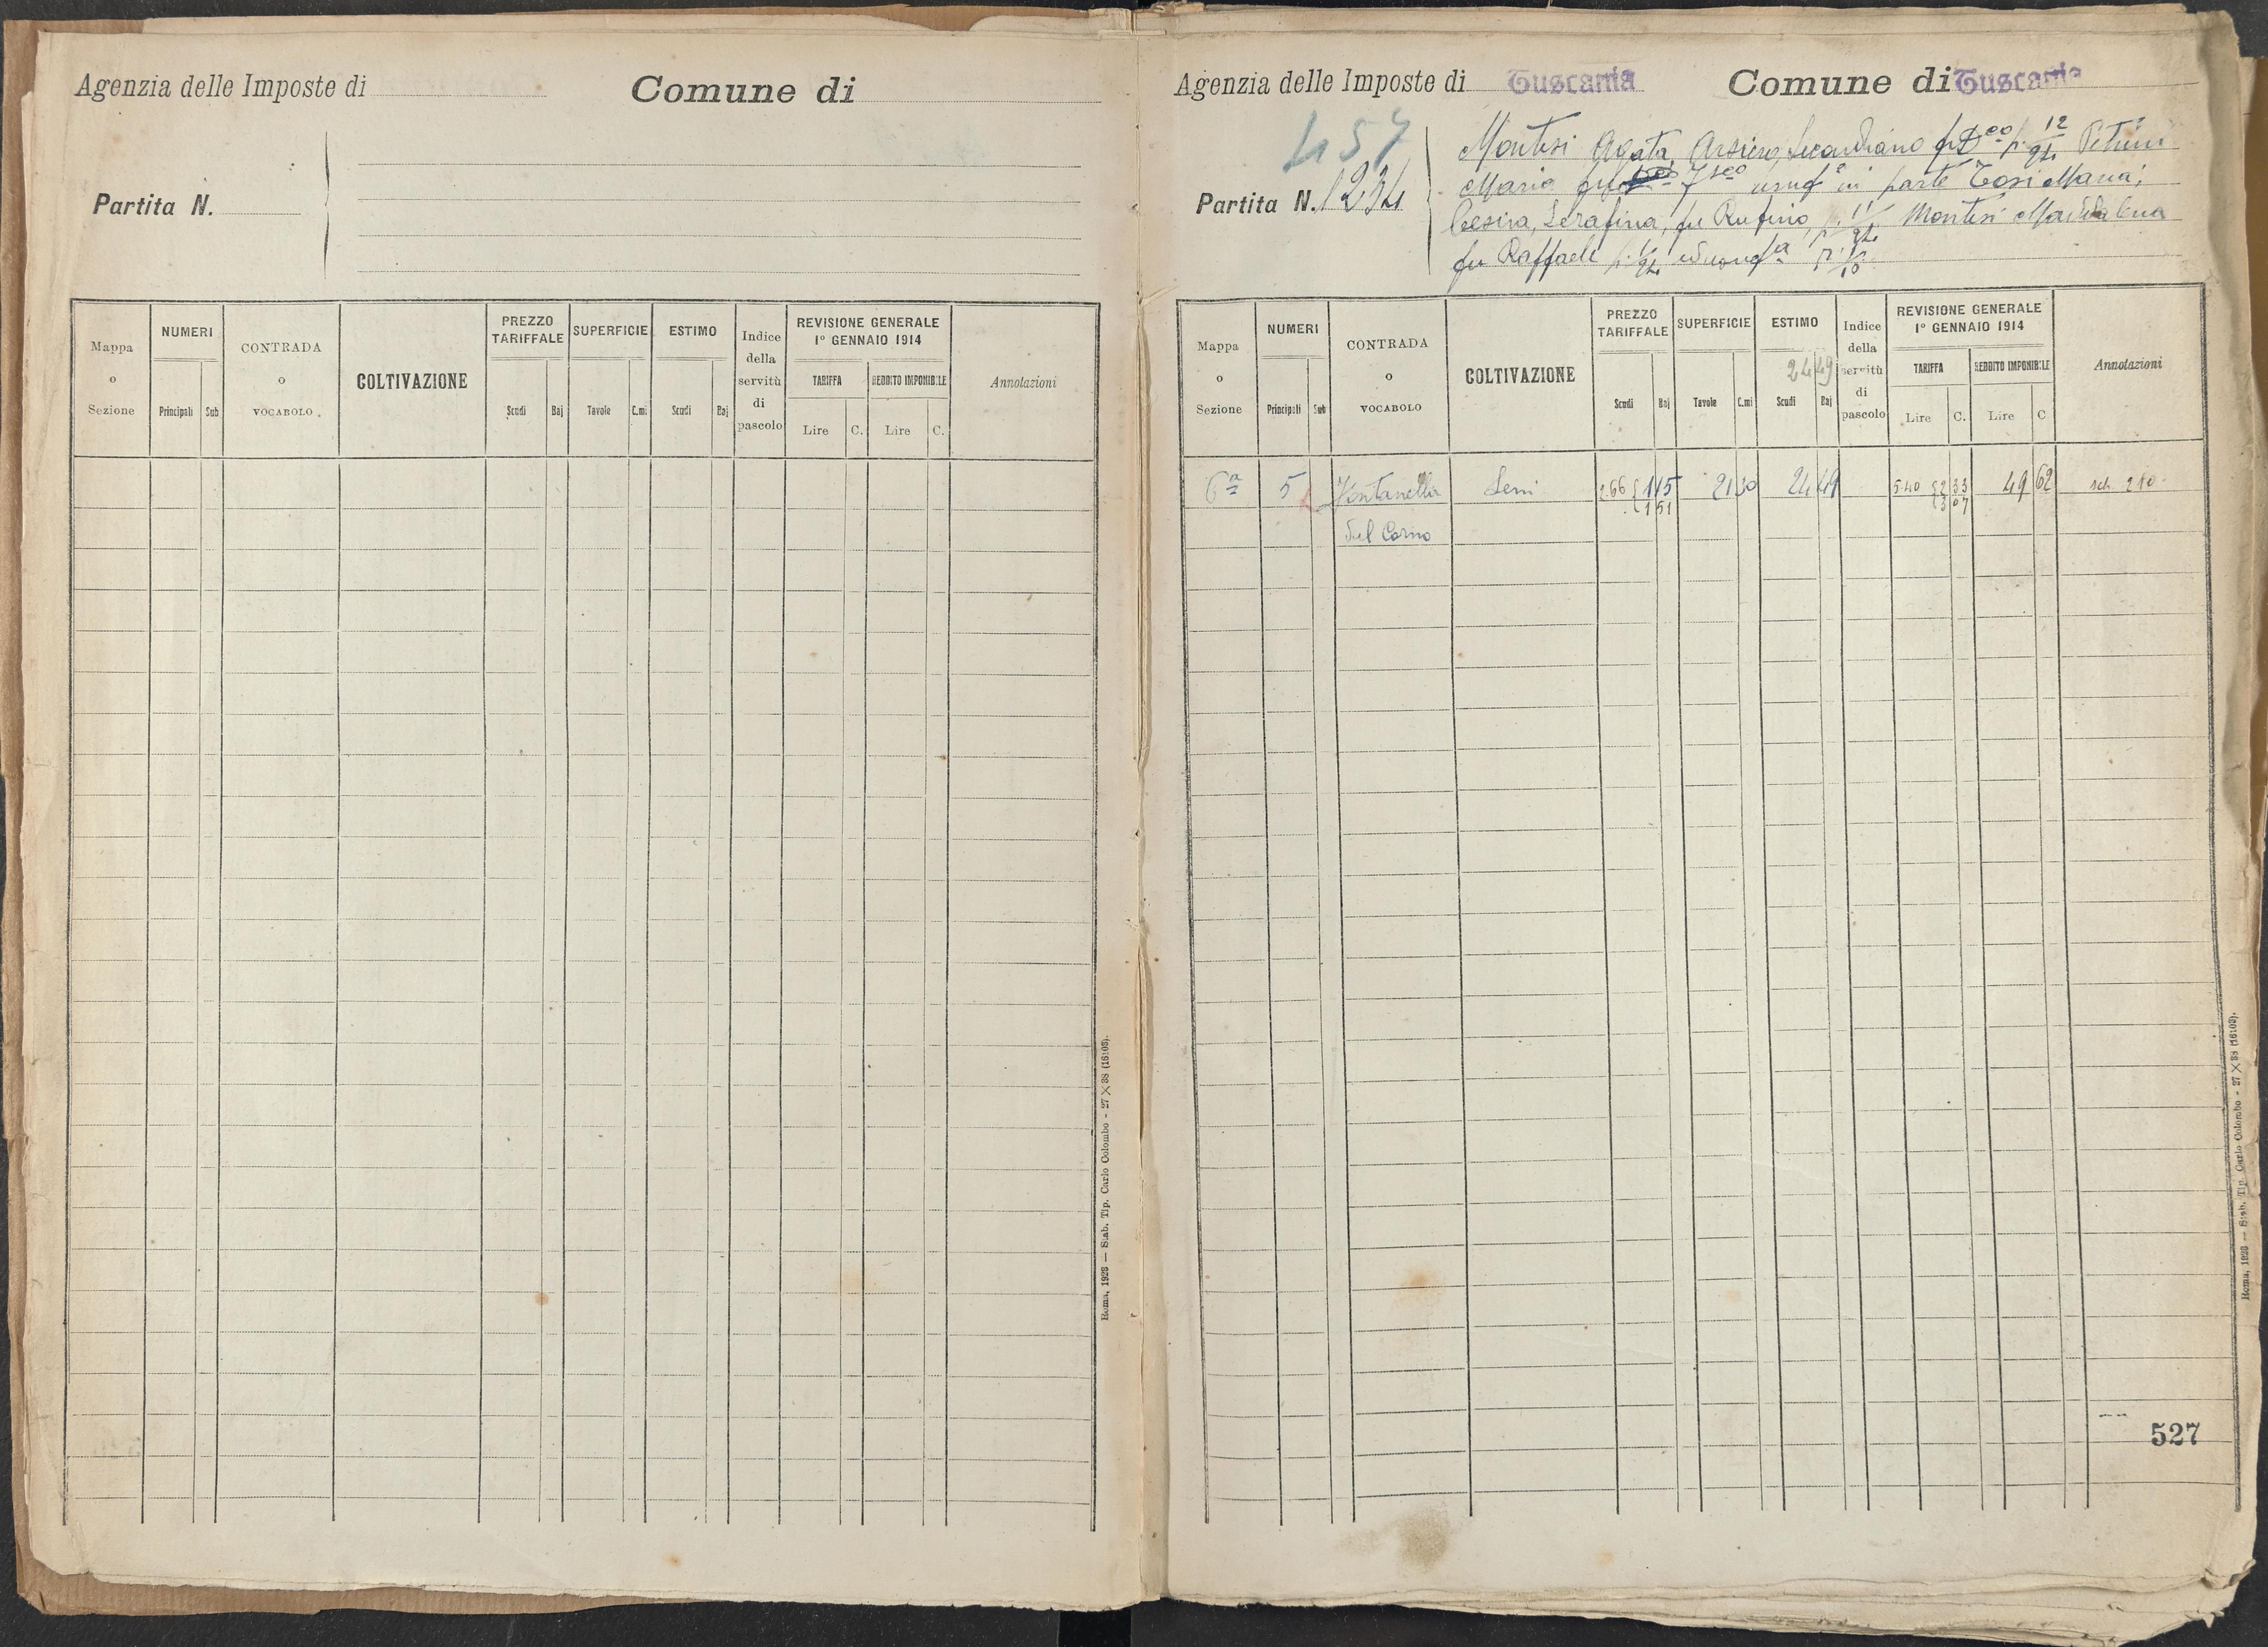 Agenzia delle Imposte di
Comune di
Partita N.
Mappa o Sezione
NUMERI
Principali
Sub
CONTRADA o VOCABOLO
COLTIVAZIONE
PREZZO TARIFFALE
Scudi
Baj
SUPERFICIE
Tavole
C.mi
ESTIMO
Scudi
Baj
Indice della servitù di pascolo
REVISIONE GENERALE 1º GENNAIO 1914
TARIFFA
Lire
C.
REDDITO IMPONIBILE
Lire
C.
Annotazioni
Roma, 1928 — Stab. Tip. Carlo Colombo - 27 × 38 (16103).
Agenzia delle Imposte di Tuscania
Comune di Tuscania
457
Partita N. 1234
Montesi Agata, Arsieno, Secondiano fu D.co 12
Maria fu usuf in parte Tosi Maria,
Cesira, Serafina, fu Rufino, 11 Montesi Maddalena
fu Raffaele
Mappa o Sezione
NUMERI
Principali
Sub
CONTRADA o VOCABOLO
COLTIVAZIONE
PREZZO TARIFFALE
Scudi
Baj
SUPERFICIE
Tavole
C.mi
ESTIMO
24 49
Scudi
Baj
Indice della servitù di pascolo
REVISIONE GENERALE 1º GENNAIO 1914
TARIFFA
Lire
C.
REDDITO IMPONIBILE
Lire
C
Annotazioni
6ª 5 Fontanella Sem 2.66 1 15 21 30 24 49 5.40 2 33 49 62 sch. 210
del Corno 1 51 3 07
527
Roma, 1928 — Stab. Tip. Carlo Colombo - 27 × 38 (16103).